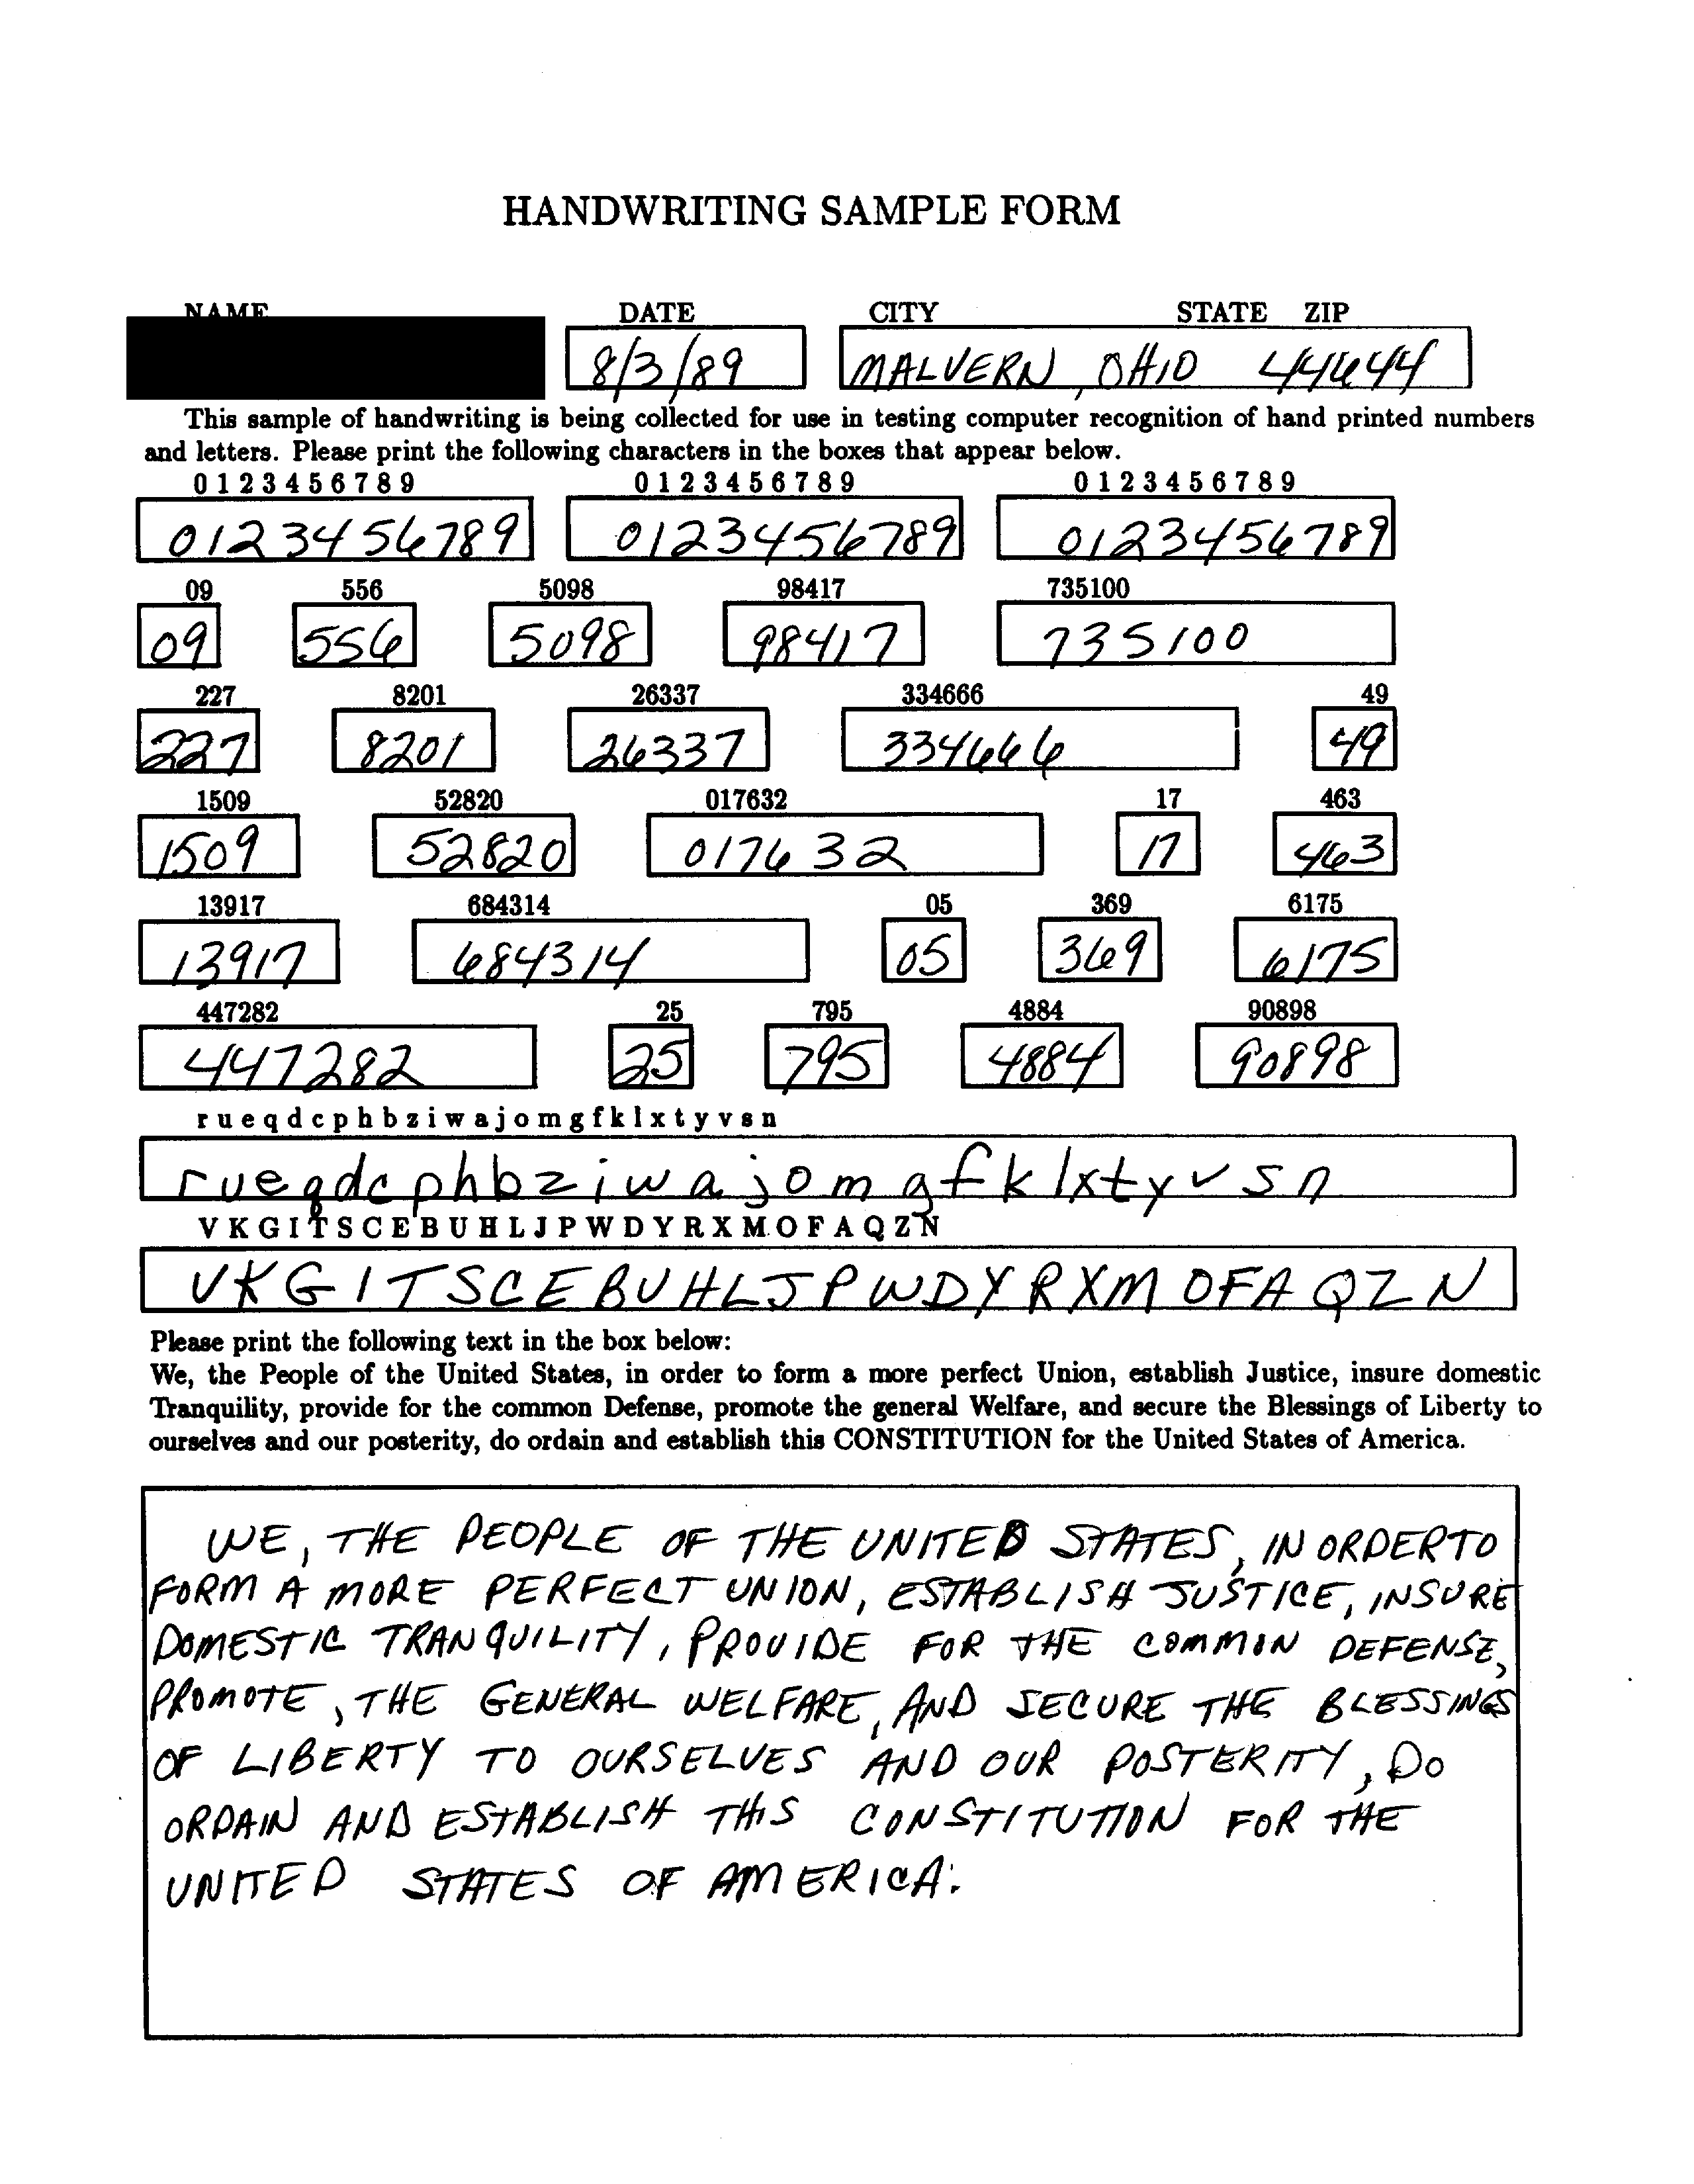 HANDWRITING SAMPLE FORM
NAME DATE CITY STATE ZIP
8/3/89 MALVERN, OHIO 44644
This sample of handwriting is being collected for use in testing computer recognition of hand printed numbers
and letters. Please print the following characters in the boxes that appear below.
0 1 2 3 4 5 6 7 8 9 0 1 2 3 4 5 6 7 8 9 0 1 2 3 4 5 6 7 8 9
0123456789 0123456789 0123456789
09 556 5098 98417 735100
09 556 5098 98417 735100
227 8201 26337 334666 49
227 8201 26337 334666 49
1509 52820 017632 17 463
1509 52820 017632 17 463
13917 684314 05 369 6175
13917 684314 05 369 6175
447282 25 795 4884 90898
447282 25 795 4884 90898
r u e q d c p h b z i w a j o m g f k l x t y v s n
r u e q d c p h b z i w a j o m g f k l x t y v s n
V K G I T S C E B U H L J P W D Y R X M O F A Q Z N
V K G I T S C E B U H L J P W D Y R X M O F A Q Z N
Please print the following text in the box below:
We, the People of the United States, in order to form a more perfect Union, establish Justice, insure domestic
Tranquility, provide for the common Defense, promote the general Welfare, and secure the Blessings of Liberty to
ourselves and our posterity, do ordain and establish this CONSTITUTION for the United States of America.
WE, THE PEOPLE OF THE UNITED STATES, IN ORDER TO
FORM A MORE PERFECT UNION, ESTABLISH JUSTICE, INSURE
DOMESTIC TRANQUILITY, PROVIDE FOR THE COMMON DEFENSE,
PROMOTE, THE GENERAL WELFARE, AND SECURE THE BLESSINGS
OF LIBERTY TO OURSELVES AND OUR POSTERITY, DO
ORDAIN AND ESTABLISH THIS CONSTITUTION FOR THE
UNITED STATES OF AMERICA.